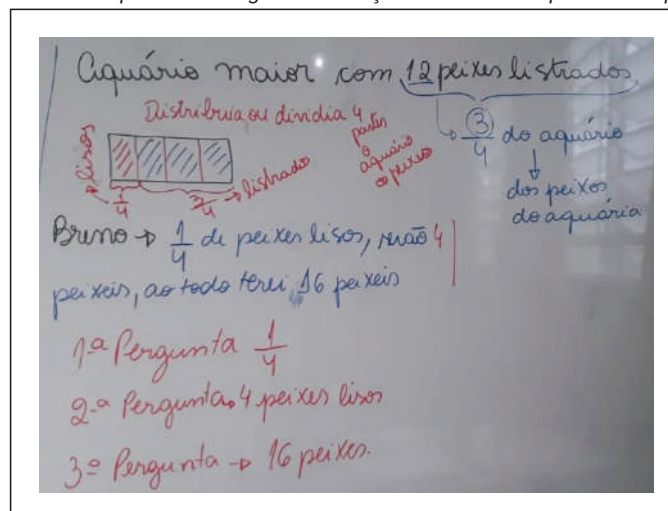 Aquário maior com 12 peixes listrados
Distribuia ou dividia 4
partes
o
aquário
os peixes
lisos
1/4
3/4 → listrado
3/4 do aquário
dos peixes
do aquária
Breno → 1/4 de peixes lisos, serão 4
peixeis, ao todo terei 16 peixeis
1ª Pergunta 1/4
2ª Pergunta → 4 peixes lisos
3ª Pergunta → 16 peixes.